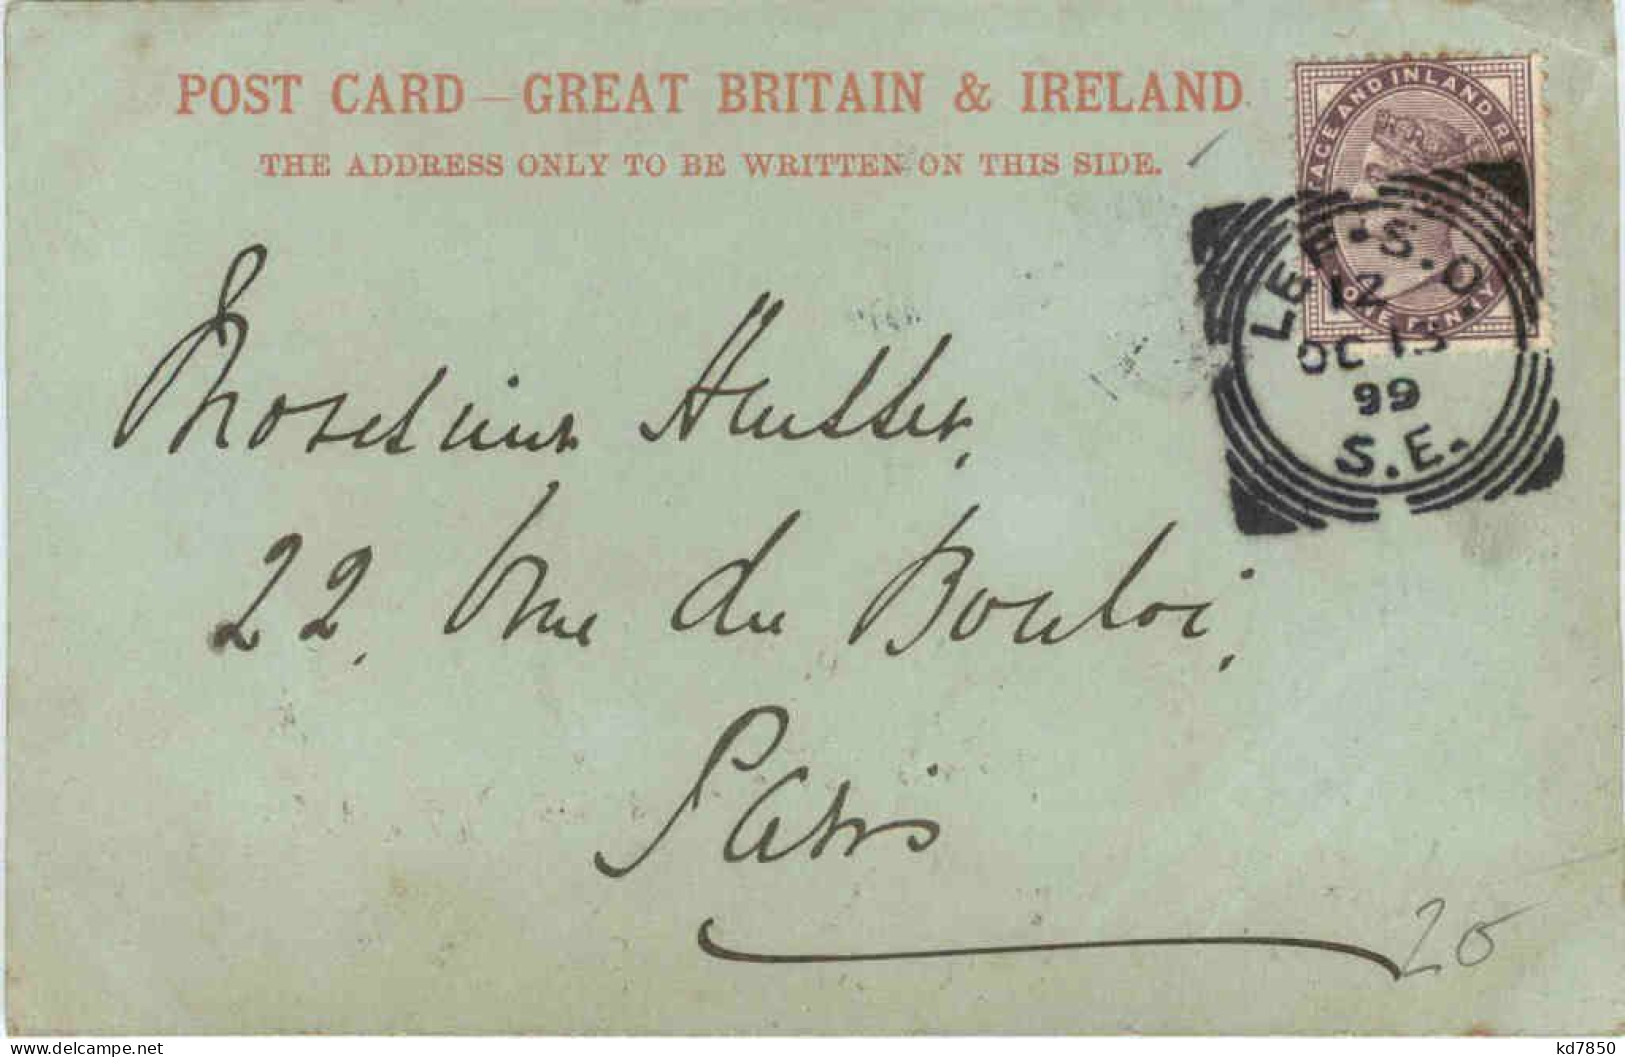 POST CARD — GREAT BRITAIN & IRELAND
THE ADDRESS ONLY TO BE WRITTEN ON THIS SIDE.
AGE AND INLAND RE
ONE PENNY
LEE S.O
12
OC 13
99
S.E.
22, Rue du Bouloi,
Paris
20
Delcampe.net
kd7850